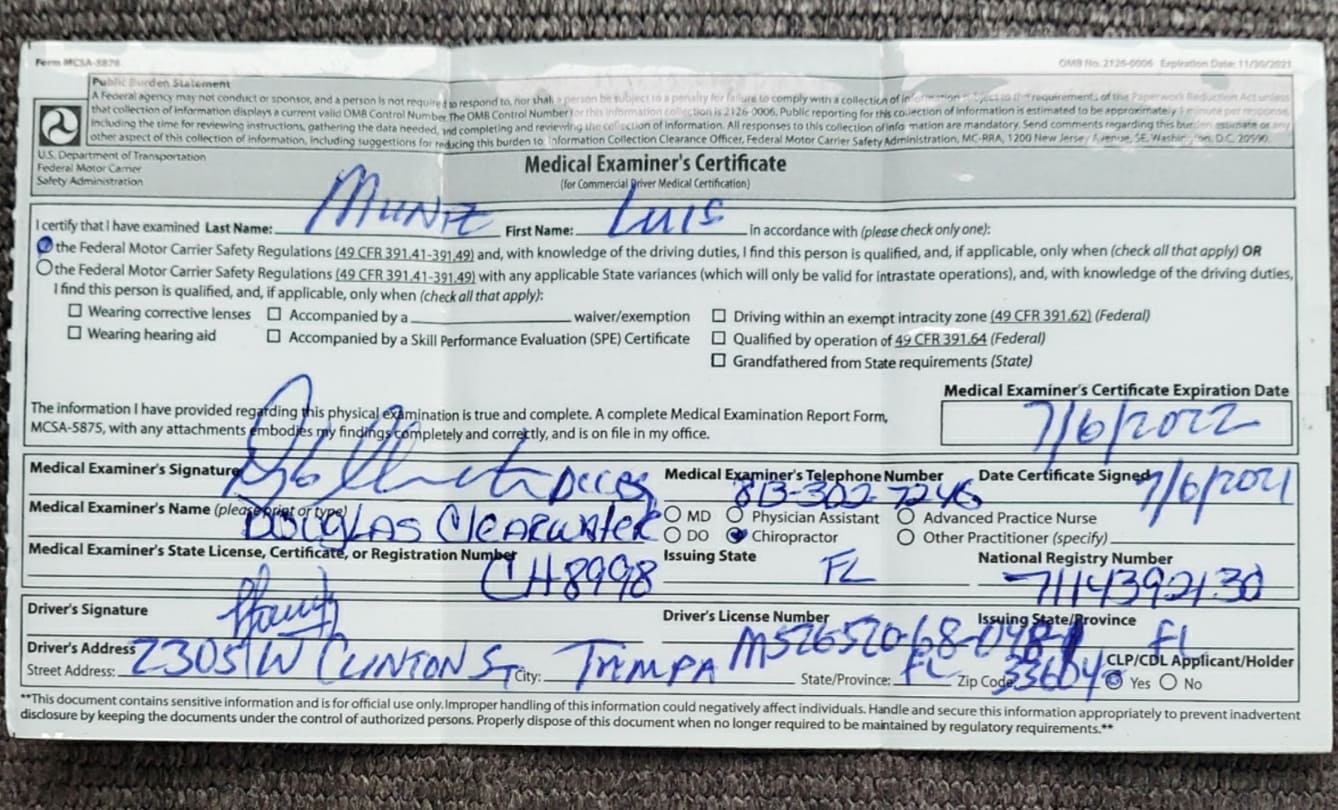 Form MCSA-5876 OMB No. 2126-0006 Expiration Date: 11/30/2021
Public Burden Statement
A Federal agency may not conduct or sponsor, and a person is not required to respond to, nor shall a person be subject to a penalty for failure to comply with a collection of information subject to the requirements of the Paperwork Reduction Act unless
that collection of information displays a current valid OMB Control Number. The OMB Control Number for this information collection is 2126-0006. Public reporting for this collection of information is estimated to be approximately 1 minute per response,
including the time for reviewing instructions, gathering the data needed, and completing and reviewing the collection of information. All responses to this collection of information are mandatory. Send comments regarding this burden estimate or any
other aspect of this collection of information, including suggestions for reducing this burden to Information Collection Clearance Officer, Federal Motor Carrier Safety Administration, MC-RRA, 1200 New Jersey Avenue, SE, Washington, D.C. 20590.
U.S. Department of Transportation
Federal Motor Carrier
Safety Administration
Medical Examiner's Certificate
(for Commercial Driver Medical Certification)
I certify that I have examined Last Name: Muniz First Name: Luis in accordance with (please check only one):
the Federal Motor Carrier Safety Regulations (49 CFR 391.41-391.49) and, with knowledge of the driving duties, I find this person is qualified, and, if applicable, only when (check all that apply) OR
the Federal Motor Carrier Safety Regulations (49 CFR 391.41-391.49) with any applicable State variances (which will only be valid for intrastate operations), and, with knowledge of the driving duties,
I find this person is qualified, and, if applicable, only when (check all that apply):
Wearing corrective lenses Accompanied by a waiver/exemption Driving within an exempt intracity zone (49 CFR 391.62) (Federal)
Wearing hearing aid Accompanied by a Skill Performance Evaluation (SPE) Certificate Qualified by operation of 49 CFR 391.64 (Federal)
Grandfathered from State requirements (State)
Medical Examiner's Certificate Expiration Date
The information I have provided regarding this physical examination is true and complete. A complete Medical Examination Report Form,
MCSA-5875, with any attachments embodies my findings completely and correctly, and is on file in my office.
7/6/2022
Medical Examiner's Signature Medical Examiner's Telephone Number Date Certificate Signed
813-302-7246 7/6/2021
Medical Examiner's Name (please print or type) Douglas Clearwater
MD Physician Assistant Advanced Practice Nurse
DO Chiropractor Other Practitioner (specify)
Medical Examiner's State License, Certificate, or Registration Number Issuing State National Registry Number
CH8998 FL 7114392130
Driver's Signature Driver's License Number Issuing State/Province
M526520-68-048- FL
Driver's Address
Street Address: 2305 W Clinton St City: Tampa State/Province: FL Zip Code: 33604
CLP/CDL Applicant/Holder
Yes No
**This document contains sensitive information and is for official use only. Improper handling of this information could negatively affect individuals. Handle and secure this information appropriately to prevent inadvertent
disclosure by keeping the documents under the control of authorized persons. Properly dispose of this document when no longer required to be maintained by regulatory requirements.**